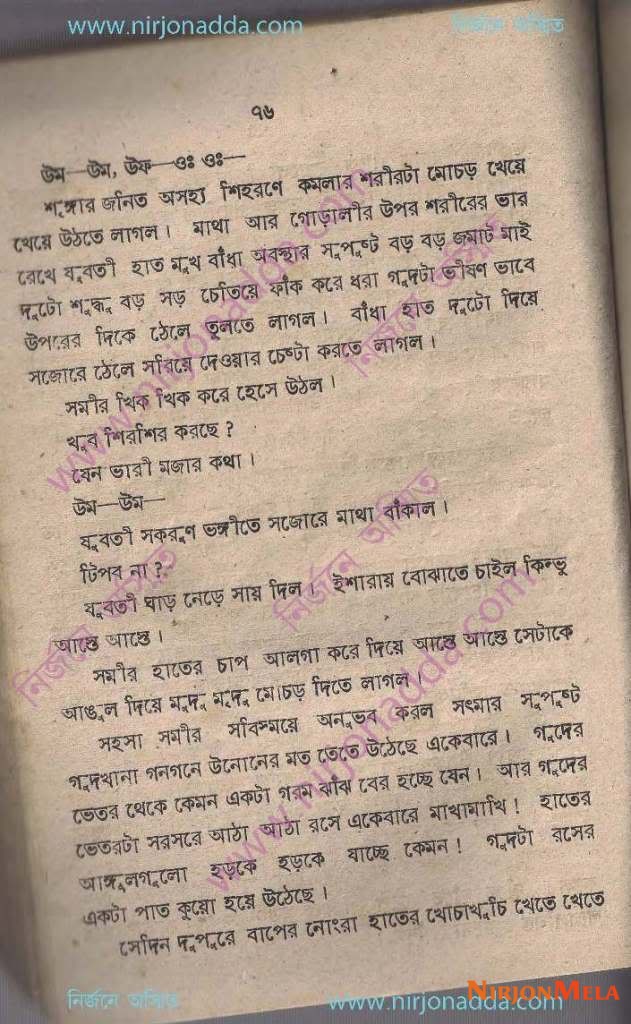 www.nirjonadda.com নির্জনে অস্মিত
৭৬
উম—উম, উফ—ওঃ ওঃ—
শৃঙ্গার জনিত অসহ্য শিহরণে কমলার শরীরটা মোচড় খেয়ে
খেয়ে উঠতে লাগল। মাথা আর গোড়ালীর উপর শরীরের ভার
রেখে যুবতী হাত মুখ বাঁধা অবস্থার সুপুষ্ট বড় বড় জমাট মাই
দুটো শুদ্ধ বড় সড় চেতিয়ে ফাঁক করে ধরা গুদটা ভীষণ ভাবে
উপরের দিকে ঠেলে তুলতে লাগল। বাঁধা হাত দুটো দিয়ে
সজোরে ঠেলে সরিয়ে দেওয়ার চেষ্টা করতে লাগল।
সমীর খিক খিক করে হেসে উঠল।
খুব শিরশির করছে?
যেন ভারী মজার কথা।
উম—উম—
যুবতী সকরুণ ভঙ্গীতে সজোরে মাথা ঝাঁকাল।
টিপব না?
যুবতী ঘাড় নেড়ে সায় দিল। ইশারায় বোঝাতে চাইল কিন্তু
আস্তে আস্তে।
সমীর হাতের চাপ আলগা করে দিয়ে আস্তে আস্তে সেটাকে
আঙুল দিয়ে মৃদু মৃদু মোচড় দিতে লাগল।
সহসা সমীর সবিস্ময়ে অনুভব করল সৎমার সুপুষ্ট
গুদখানা গনগনে উনোনের মত তেতে উঠেছে একেবারে। গুদের
ভেতর থেকে কেমন একটা গরম ঝাঁঝ বের হচ্ছে যেন। আর গুদের
ভেতরটা সরসরে আঠা আঠা রসে একেবারে মাখামাখি! হাতের
আঙ্গুলগুলো হড়কে হড়কে যাচ্ছে কেমন! গুদটা রসের
একটা পাত কুয়ো হয়ে উঠেছে।
সেদিন দুপুরে বাপের নোংরা হাতের খোচাখুচি খেতে খেতে
www.nirjonadda.com
নির্জনে অস্মিত
www.nirjonadda.com
নির্জনে অস্মিত
নির্জনে অস্মিত
নির্জনে অস্মিত www.nirjonadda.com NIRJONMELA